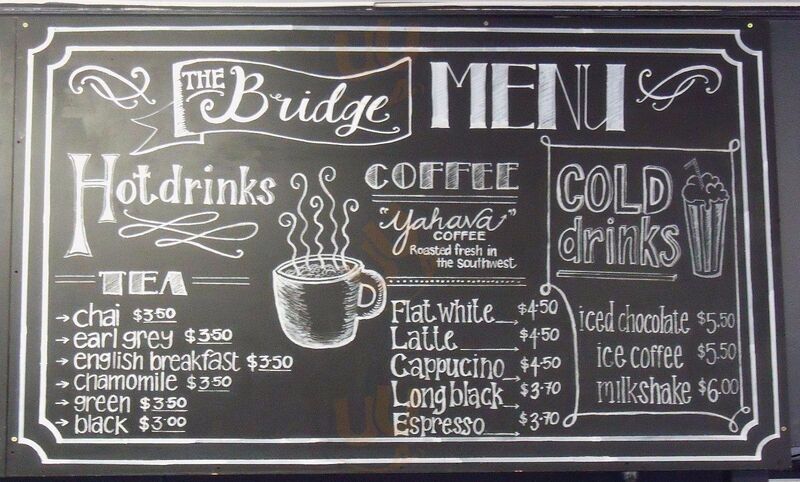 THE Bridge MENU
Hot drinks
TEA
→ chai $3.50
→ earl grey $3.50
→ english breakfast $3.50
→ chamomile $3.50
→ green $3.50
→ black $3.00
COFFEE
"Yahava"
COFFEE
Roasted fresh in
the Southwest
Flat white → $4.50
Latte → $4.50
Cappucino → $4.50
Long black → $3.70
Espresso → $3.70
COLD
drinks
iced chocolate $5.50
ice coffee $5.50
milkshake $6.00